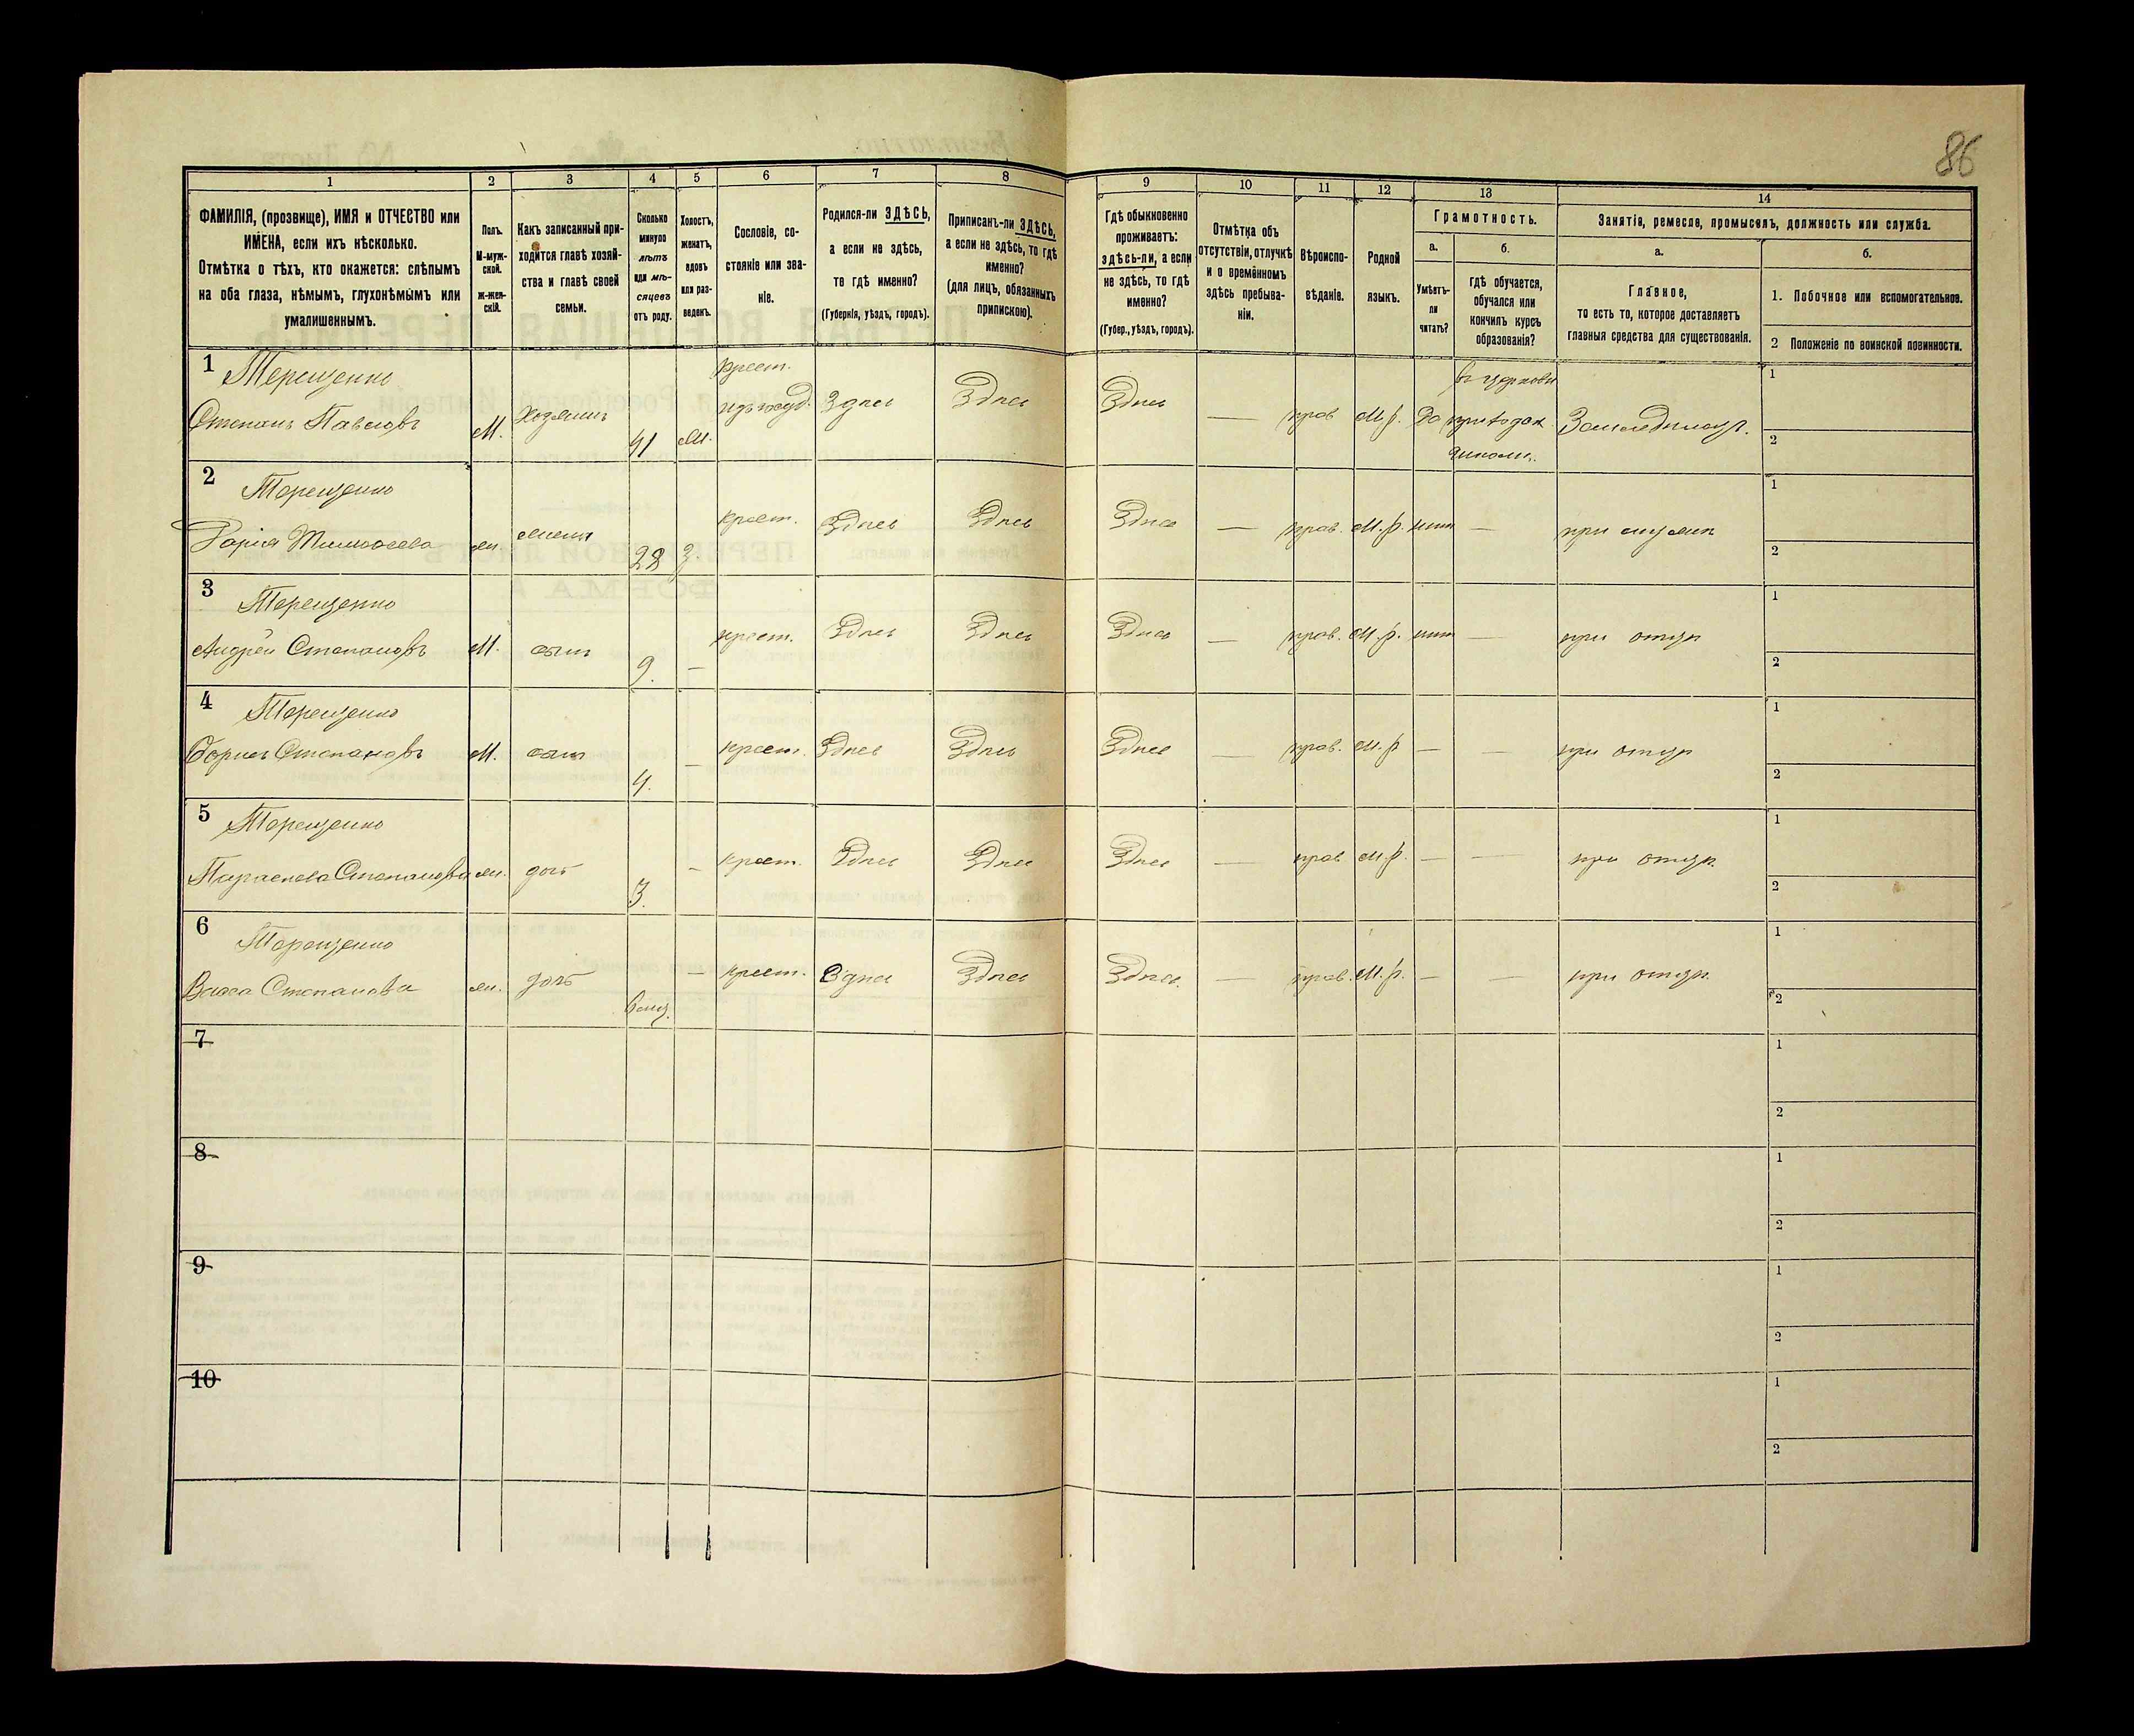 86
1 2 3 4 5 6 7 8 9 10 11 12 13 14
ФАМИЛІЯ, (прозвище), ИМЯ и ОТЧЕСТВО или
ИМЕНА, если ихъ нѣсколько.
Отмѣтка о тѣхъ, кто окажется: слѣпымъ
на оба глаза, нѣмымъ, глухонѣмымъ или
умалишеннымъ.
Полъ.
М-муж-
ской.
Ж-жен-
скій.
Какъ записанный при-
ходится главѣ хозяй-
ства и главѣ своей
семьи.
Сколько
минуло
лѣтъ
или мѣ-
сяцевъ
отъ роду.
Холостъ,
женатъ,
вдовъ
или раз-
веденъ.
Сословіе, со-
стояніе или зва-
ніе.
Родился-ли ЗДѢСЬ,
а если не здѣсь,
то гдѣ именно?
(Губернія, уѣздъ, городъ).
Приписанъ-ли ЗДѢСЬ,
а если не здѣсь, то гдѣ
именно?
(для лицъ, обязанныхъ
припискою).
Гдѣ обыкновенно
проживаетъ:
здѣсь-ли, а если
не здѣсь, то гдѣ
именно?
(Губер., уѣздъ, городъ).
Отмѣтка объ
отсутствіи, отлучкѣ
и о временномъ
здѣсь пребыва-
ніи.
Вѣроиспо-
вѣданіе.
Родной
языкъ.
Грамотность.
а.
Умѣетъ-
ли
читать?
б.
Гдѣ обучается,
обучался или
кончилъ курсъ
образованія?
Занятіе, ремесло, промыселъ, должность или служба.
а.
Главное,
то есть то, которое доставляетъ
главныя средства для существованія.
б.
1. Побочное или вспомогательное.
2 Положеніе по воинской повинности.
1 Терещенко крест. въ церковн
Степанъ Павловъ М. Хозяинъ 41 ж. Здѣсь Здѣсь Здѣсь — прав М.р. Да приходск. 1
школѣ. 2
2 Терещенко
Тимофеева ж. жена 28 З. крест. Здѣсь Здѣсь Здѣсь — прав. М.р. нѣт — при мужѣ 1
2
3 Терещенко
Андрей Степановъ М. сынъ 9. — крест. Здѣсь Здѣсь Здѣсь — прав. М.р. нѣт — при отцѣ 1
2
4 Терещенко
Борисъ Степановъ М. сынъ 4. — крест. Здѣсь Здѣсь Здѣсь — прав. М.р — — при отцѣ 1
2
5 Терещенко
Параскева Степанова ж. доч 3. — крест. Здѣсь Здѣсь Здѣсь — прав М.р. — — при отцѣ. 1
2
6 Терещенко
Васса Степанова ж. доч — крест. Здѣсь Здѣсь Здѣсь. — прав. М.р. — — при отцѣ. 1
2
7 1
2
8 1
2
9 1
2
10 1
2